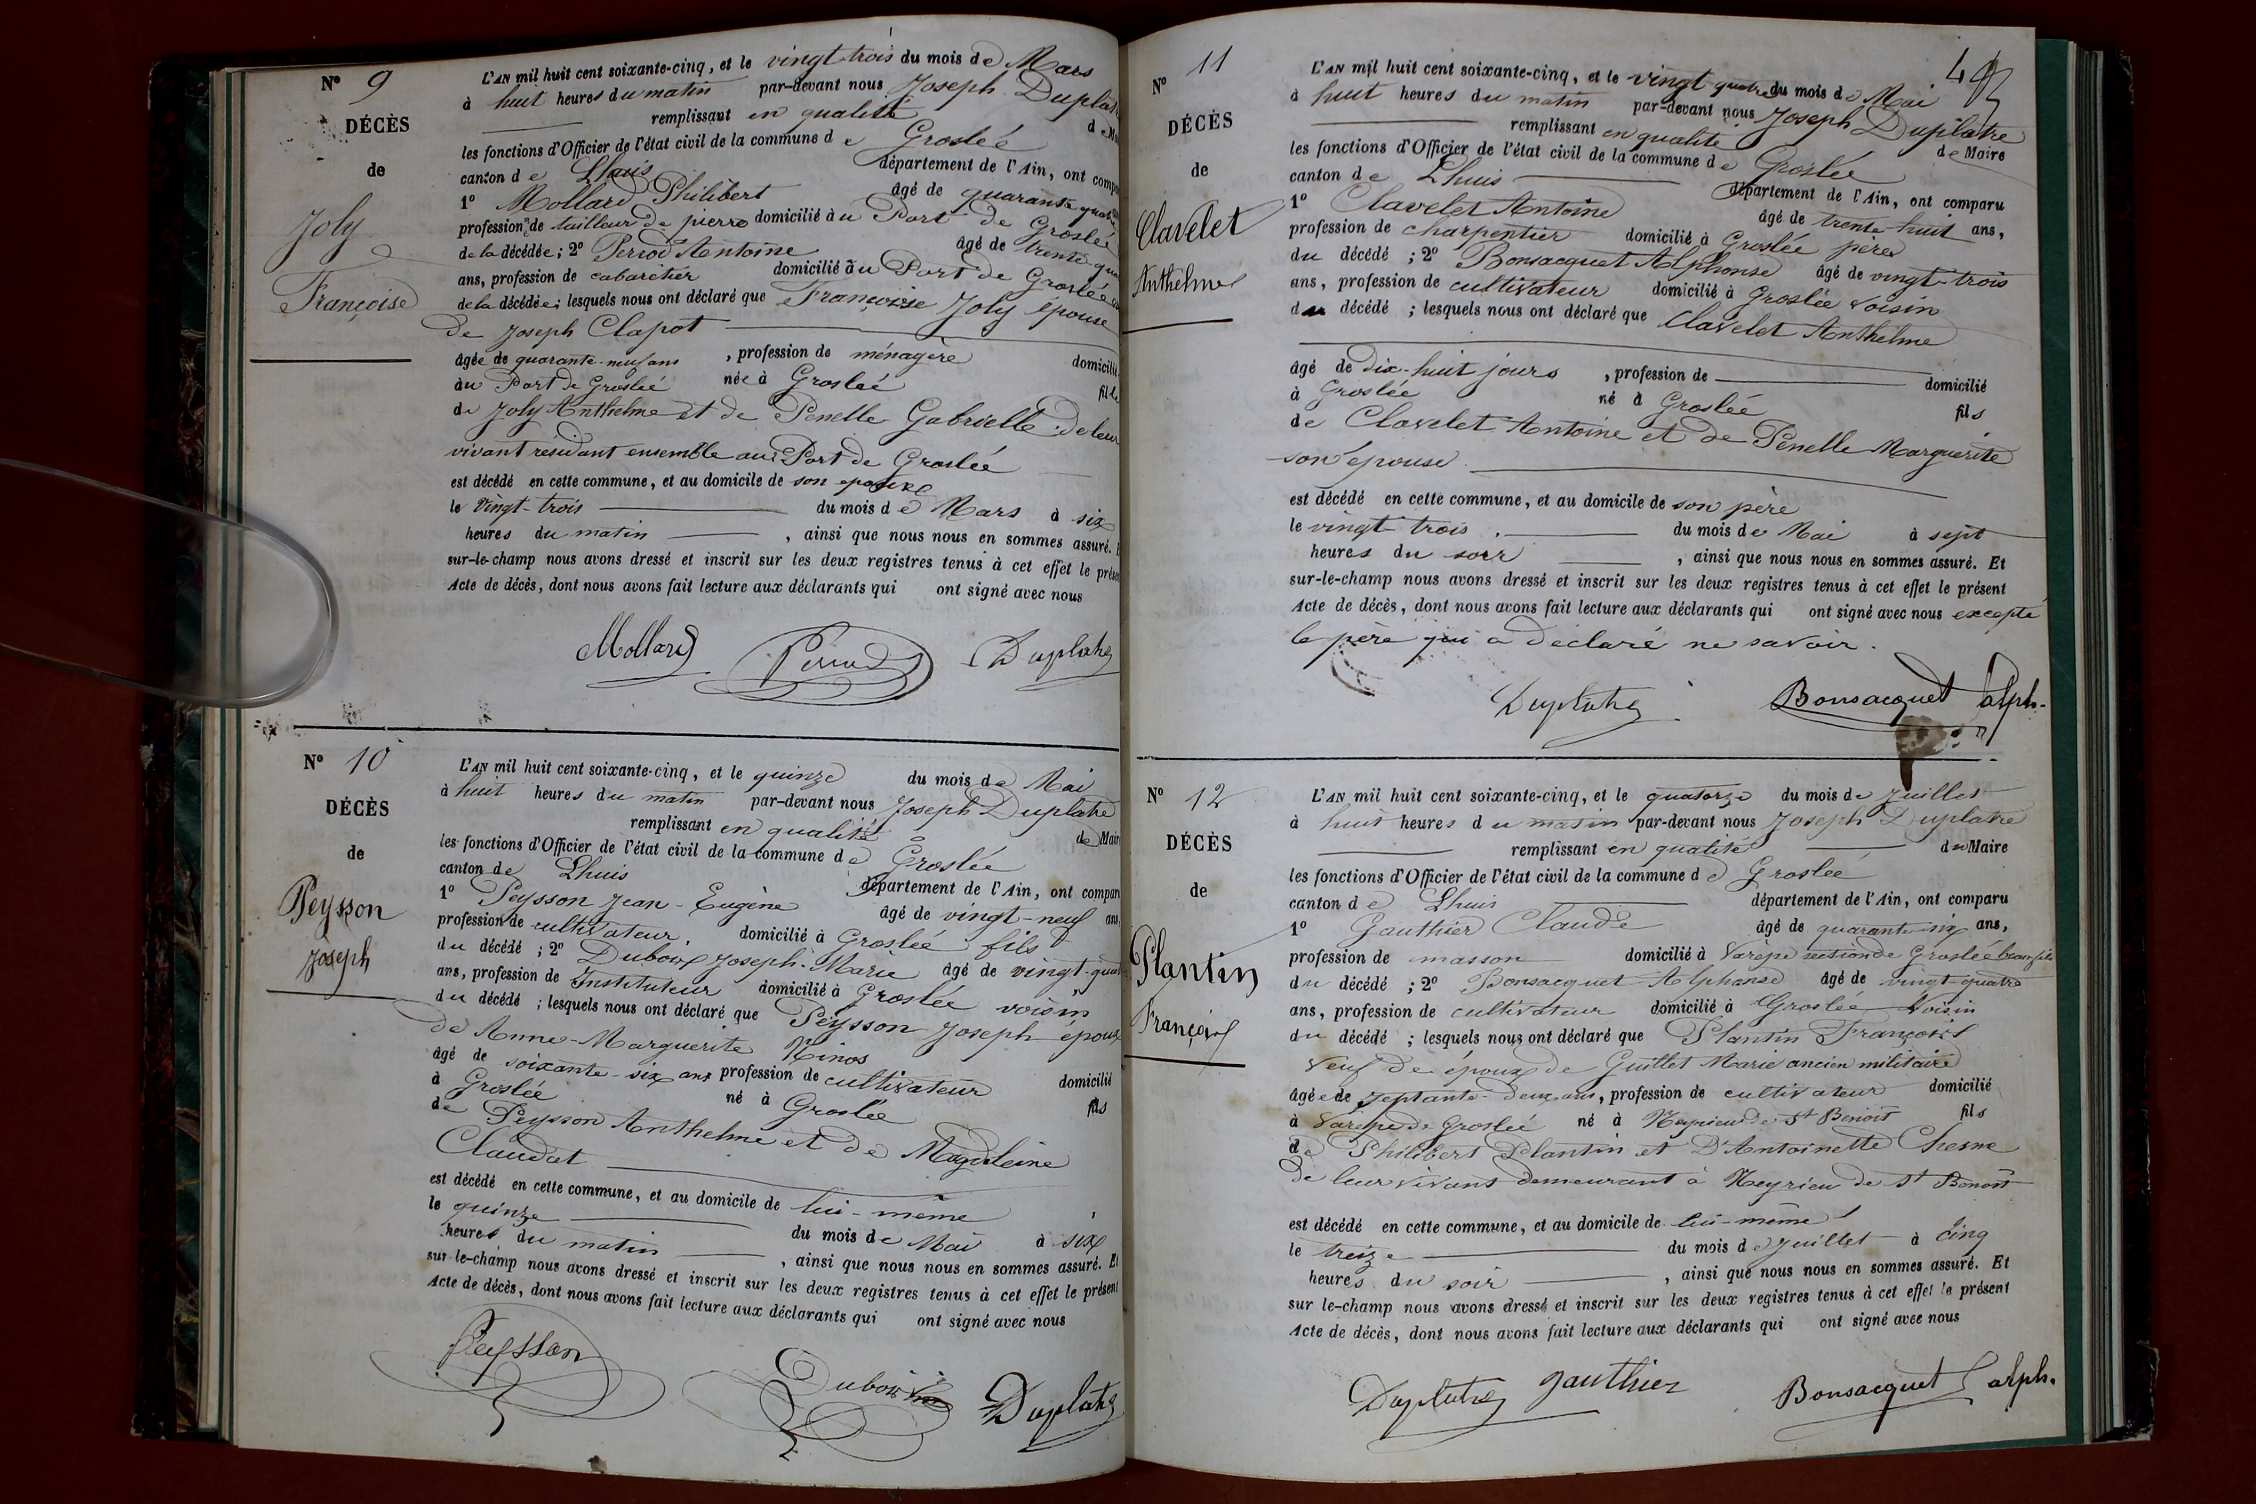 Nº 9
DÉCÈS
de
Joly
Françoise
L'AN mil huit cent soixante-cinq, et le vingt-trois du mois de Mars
à huit heures du matin par-devant nous Joseph Duplatre
remplissant en qualité de Maire
les fonctions d'Officier de l'état civil de la commune de Groslée
canton de Lhuis département de l'Ain, ont comparu
1º Mollard Philibert âgé de quarante quatre
profession de tailleur de pierre domicilié au Port de Groslée
de la décédée ; 2º Perrod Antoine âgé de trente
ans, profession de cabaretier domicilié au Port de Groslée
de la décédée ; lesquels nous ont déclaré que Françoise Joly épouse
de Joseph Clapot
âgée de quarante-neuf ans , profession de ménagère domiciliée
au Port de Groslée née à Groslée fille
de Joly Anthelme et de Penelle Gabrielle de leur
vivant résidant ensemble au Port de Groslée
est décédé en cette commune, et au domicile de son epoux
le vingt-trois du mois de Mars à six
heures du matin , ainsi que nous nous en sommes assuré. Et
sur-le-champ nous avons dressé et inscrit sur les deux registres tenus à cet effet le présent
Acte de décès, dont nous avons fait lecture aux déclarants qui ont signé avec nous
Mollard Perrod Duplatre
Nº 10
DÉCÈS
de
Peysson
Joseph
L'AN mil huit cent soixante-cinq, et le quinze du mois de Mai
à huit heures du matin par-devant nous Joseph Duplatre
remplissant en qualité de Maire
les fonctions d'Officier de l'état civil de la commune de Groslée
canton de Lhuis département de l'Ain, ont comparu
1º Peysson Jean-Eugène âgé de vingt-neuf ans,
profession de cultivateur, domicilié à Groslée fils
du décédé ; 2º Duboux Joseph-Marie âgé de vingt-quatre
ans, profession de Instituteur domicilié à Groslée voisin
du décédé ; lesquels nous ont déclaré que Peysson Joseph époux
de Anne-Marguerite Ninos
âgé de soixante-six ans profession de cultivateur domicilié
à Groslée né à Groslée fils
de Peysson Anthelme et de Magdeleine
Claudat
est décédé en cette commune, et au domicile de lui-même
le quinze du mois de Mai à six
heures du matin , ainsi que nous nous en sommes assuré. Et
sur-le-champ nous avons dressé et inscrit sur les deux registres tenus à cet effet le présent
Acte de décès, dont nous avons fait lecture aux déclarants qui ont signé avec nous
Peysson Duboux Duplatre
4
Nº 11
DÉCÈS
de
Clavelet
Anthelme
L'AN mil huit cent soixante-cinq, et le vingt quatre du mois de Mai
à huit heures du matin par-devant nous Joseph Duplatre
remplissant en qualité de Maire
les fonctions d'Officier de l'état civil de la commune de Groslée
canton de Lhuis département de l'Ain, ont comparu
1º Clavelet Antoine âgé de trente-huit ans,
profession de charpentier domicilié à Groslée père
du décédé ; 2º Bonsacquet Alphonse âgé de vingt-trois
ans, profession de cultivateur domicilié à Groslée voisin
du décédé ; lesquels nous ont déclaré que Clavelet Anthelme
âgé de dix-huit jours , profession de domicilié
à Groslée né à Groslée fils
de Clavelet Antoine et de Penelle Marguerite
son épouse
est décédé en cette commune, et au domicile de son père
le vingt-trois du mois de Mai à sept
heures du soir , ainsi que nous nous en sommes assuré. Et
sur-le-champ nous avons dressé et inscrit sur les deux registres tenus à cet effet le présent
Acte de décès, dont nous avons fait lecture aux déclarants qui ont signé avec nous excepté
le père qui a déclaré ne savoir.
Duplatre Bonsacquet alph.
Nº 12
DÉCÈS
de
Plantin
François
L'AN mil huit cent soixante-cinq, et le quatorze du mois de Juillet
à huit heures du matin par-devant nous Joseph Duplatre
remplissant en qualité de Maire
les fonctions d'Officier de l'état civil de la commune de Groslée
canton de Lhuis département de l'Ain, ont comparu
1º Gauthier Claude âgé de quarante-six ans,
profession de masson domicilié à Varèpe section de Groslée beau fils
du décédé ; 2º Bonsacquet Alphonse âgé de vingt-quatre
ans, profession de cultivateur domicilié à Groslée Voisin
du décédé ; lesquels nous ont déclaré que Plantin François
Veuf de époux de Guillet Marie ancien militaire
âgé de septante-deux ans, profession de cultivateur domicilié
à Varèpe de Groslée né à Neyrieu de St Benoit fils
de Philibert Plantin et D'Antoinette Chesne
de leur vivant demeurant à Neyrieu de St Benoit
est décédé en cette commune, et au domicile de lui-même
le treize du mois de Juillet à cinq
heures du soir , ainsi que nous nous en sommes assuré. Et
sur le-champ nous avons dressé et inscrit sur les deux registres tenus à cet effet le présent
Acte de décès, dont nous avons fait lecture aux déclarants qui ont signé avec nous
Duplatre gauthier Bonsacquet alph.